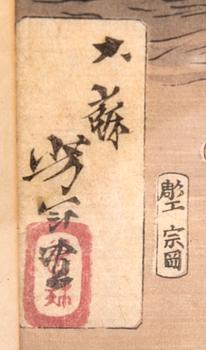 大蘇
芳年筆
彫工 宗岡